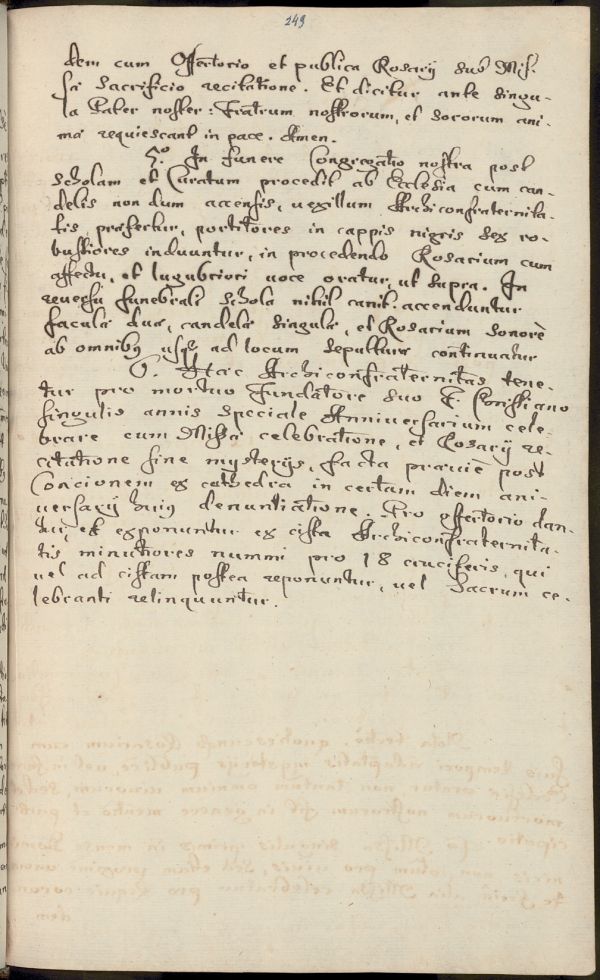 249
dem cum Offertorio et publica Rosarij sub Mis-
sæ Sacrificio recitatione. Et dicitur ante singu-
la Pater noster: Fratrum nostrorum, et Sororum ani-
mæ requiescant in pace. Amen.
5.º In funere Congregatio nostra post
Scholam et Curatum procedit ab Ecclesia cum can-
delis non dum accensis, vexillum Archiconfraternita-
tis præfertur, portitores in cappis nigris sex ro-
bustiores induuntur, in procedendo Rosarium cum
affectu, et lugubriori voce oratur, ut supra. In
reversu funebrali Schola nihil canit. accenduntur
faculæ duæ, candelæ singulæ, et Rosarium sonorè
ab omnibꝰ usq3 ad locum Sepulturæ continuatur
6. Hæc Archiconfraternitas tene-
tur pro mortuo Fundatore suo F.
singulis annis speciale Anniversarium cele-
brare cum Missæ celebratione, et Rosarij re-
citatione sine mysterijs, facta prævie post
Concionem ex cathedra in certam diem ani-
versarij hujꝰ denuntiatione. Pro offertorio dan-
tur, et exponuntur ex cista Archiconfraternita-
tis minutiores nummi pro 18 cruciferis, qui
vel ad cistam postea reponuntur, vel Sacrum ce-
lebranti relinquuntur.